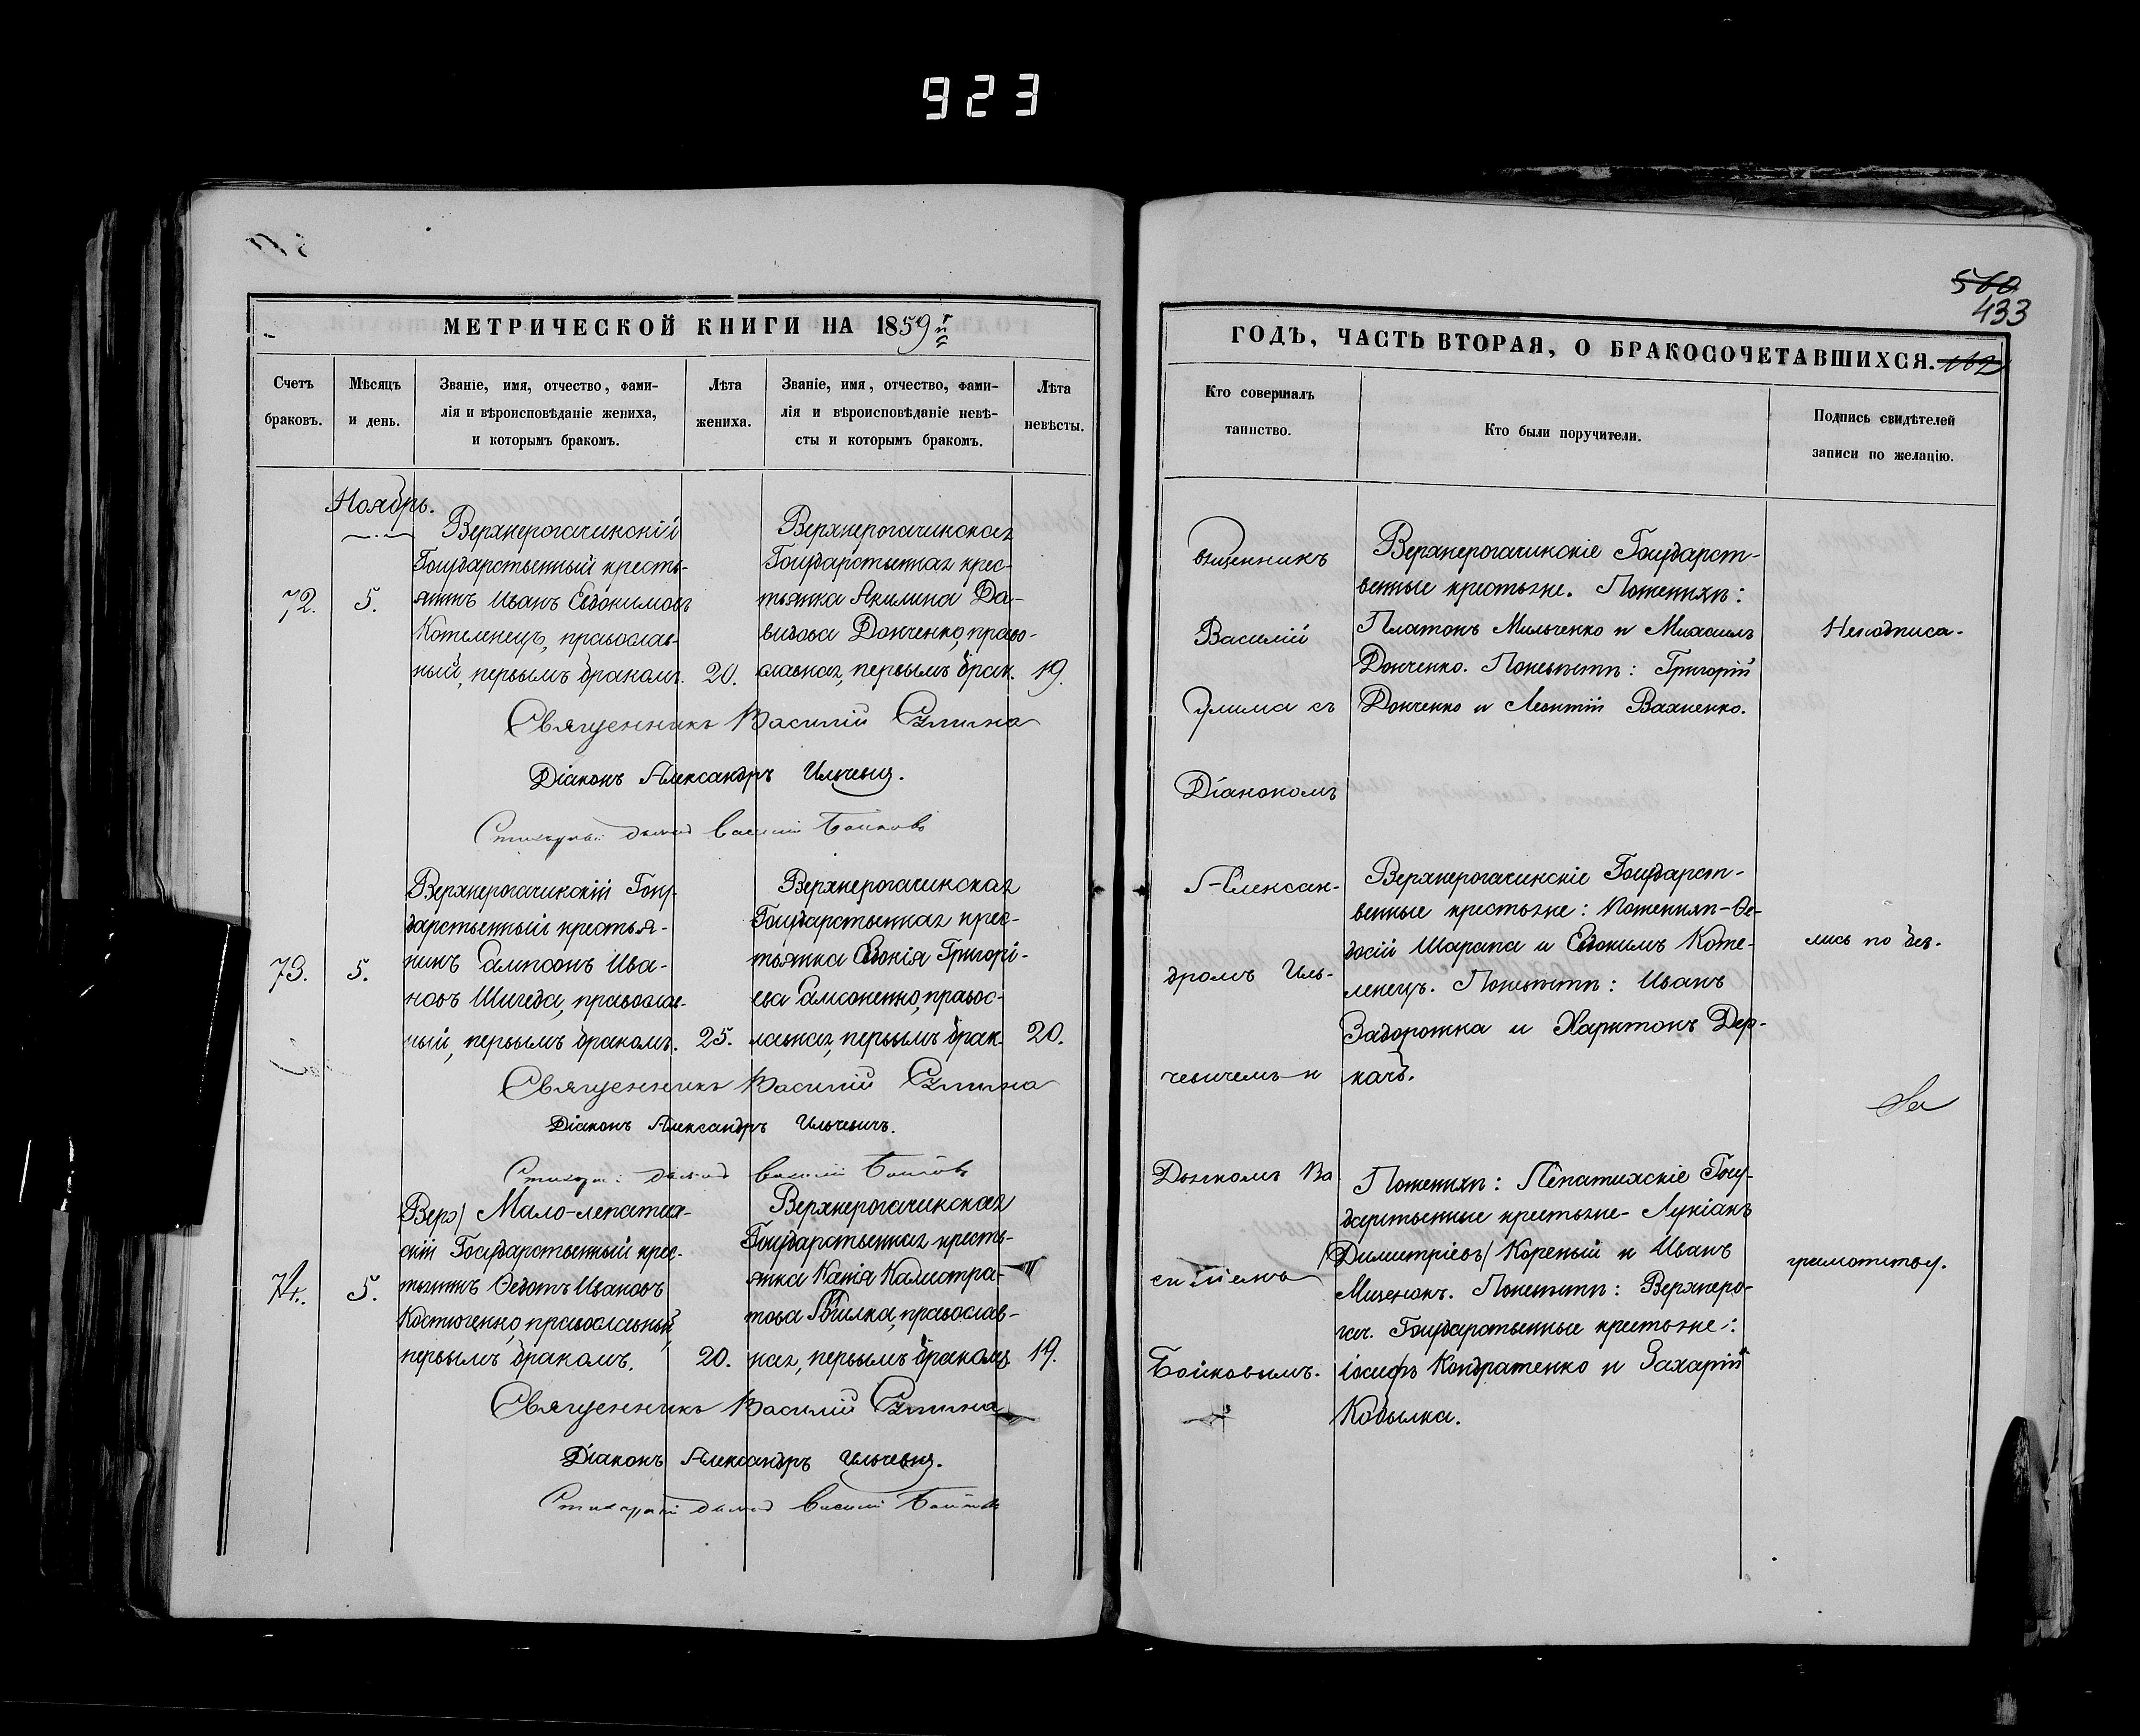 923
560
433
МЕТРИЧЕСКОЙ КНИГИ НА 1859й
Счетъ браковъ.
Мѣсяцъ и день.
Званіе, имя, отчество, фами-
лія и вѣроисповѣданіе жениха,
и которымъ бракомъ.
Лѣта жениха.
Званіе, имя, отчество, фами-
лія и вѣроисповѣданіе невѣ-
сты и которымъ бракомъ.
Лѣта невѣсты.
Ноябрь.
72.
5.
Верхнерогачинскій
Государственный кресть-
янинъ Иванъ Евдокимовъ
Котеленецъ, православ-
ный, первымъ бракомъ.
20.
Верхнерогачинская
Государственная крес-
тьянка Акилина Да-
видова Донченко, право-
славная, первымъ брак.
19.
Священникъ Василій
Діаконъ Александръ Ильчевич.
Василій Бойковъ
73.
5.
Верхнерогачинскій Госу-
дарственный крестья-
нинъ Сампсонъ Ива-
новъ Шигеда, православ-
ный, первымъ бракомъ.
25.
Верхнерогачинская
Государственная крес-
тьянка Евдокія Григорі-
ева Самсоненко, правос-
лавная, первымъ брак.
20.
Священникъ Василій
Діаконъ Александръ Ильчевичъ.
Василій Бойковъ
74.
5.
Верх/ Мало-лепатих-
скій Государственный крес-
тьянинъ Ѳедотъ Ивановъ
Костюченко, православный,
первымъ бракомъ.
20.
Верхнерогачинская
Государственная кресть-
янка Калистра-
това православ-
ная, первымъ бракомъ
19.
Священникъ Василій
Діаконъ Александръ Ильчевич.
Василій Бойковъ
ГОДЪ, ЧАСТЬ ВТОРАЯ, О БРАКОСОЧЕТАВШИХСЯ.
162
Кто совершалъ таинство.
Кто были поручители.
Подпись свидѣтелей
записи по желанію.
Священникъ
Василій
съ
Діакономъ
Алексан-
дромъ Иль-
чевичемъ и
Дьячкомъ Ва
силіемъ
Бойковымъ.
Верхнерогачинскіе Государст-
венные крестьяне. По женихѣ:
Платонъ Мильченко и Михаилъ
Донченко. По невѣстѣ: Григорій
Донченко и Леонтій Вахненко.
Верхнерогачинскіе Государст-
венные крестьяне: По женихѣ-Ѳе-
досій Шарапа и Евдокимъ Коте-
ленецъ. По невѣстѣ: Иванъ
Задорожка и Харитонъ Дер-
качъ.
По женихѣ: Лепатихскіе Госу-
дарственные крестьяне- Лукіанъ
/Димитріевъ/ Кореный и Иванъ
Мизенокъ. По невѣстѣ: Верхнеро-
гач. Государственные крестьяне:
Іосифъ Кондратенко и Захарій
Кобылка.
Неподписа-
лись по без-
грамотству.